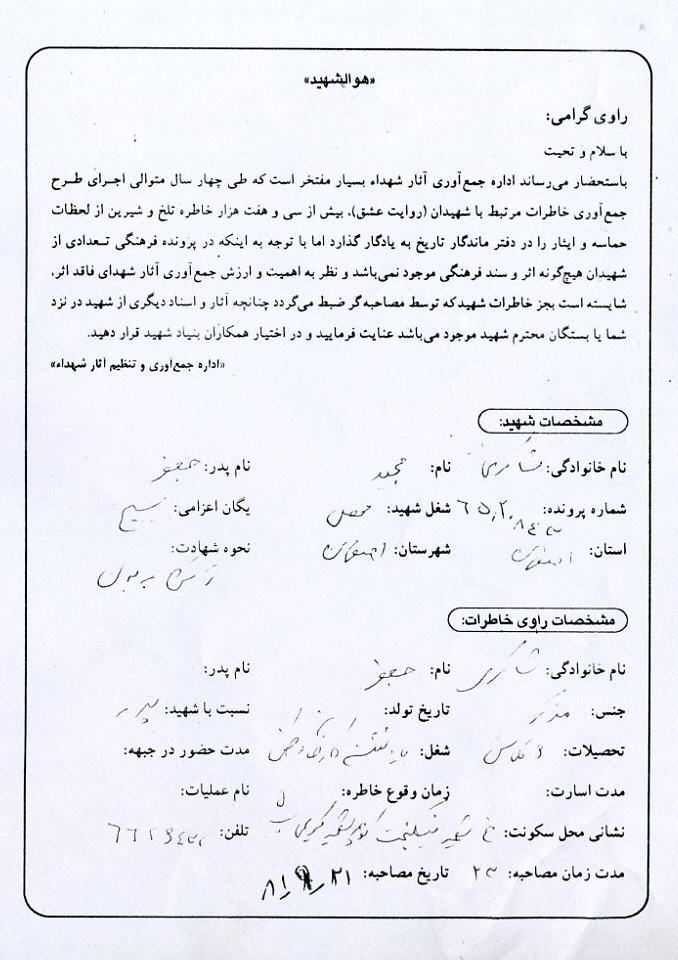 «هوالشهید»
راوی گرامی:
با سلام و تحیت
باستحضار می‌رساند اداره جمع‌آوری آثار شهداء بسیار مفتخر است که طی چهار سال متوالی اجرای طرح
جمع‌آوری خاطرات مرتبط با شهیدان (روایت عشق)، بیش از سی و هفت هزار خاطره تلخ و شیرین از لحظات
حماسه و ایثار را در دفتر ماندگار تاریخ به یادگار گذارد اما با توجه به اینکه در پرونده فرهنگی تعدادی از
شهیدان هیچ‌گونه اثر و سند فرهنگی موجود نمی‌باشد و نظر به اهمیت و ارزش جمع‌آوری آثار شهدای فاقد اثر،
شایسته است بجز خاطرات شهید که توسط مصاحبه‌گر ضبط می‌گردد چنانچه آثار و اسناد دیگری از شهید در نزد
شما یا بستگان محترم شهید موجود می‌باشد عنایت فرمایید و در اختیار همکاران بنیاد شهید قرار دهید.
«اداره جمع‌آوری و تنظیم آثار شهداء»
مشخصات شهید:
نام خانوادگی: شاکری نام: مجید نام پدر: جعفر
شماره پرونده: ۶۵۲۰۸۴۳ شغل شهید: محصل یگان اعزامی: بسیج
استان: اصفهان شهرستان: اصفهان نحوه شهادت:
مشخصات راوی خاطرات:
نام خانوادگی: شاکری نام: جعفر نام پدر:
جنس: مذکر تاریخ تولد: نسبت با شهید: پدر
تحصیلات: ۶ کلاس شغل: بازنشسته مدت حضور در جبهه:
مدت اسارت: زمان وقوع خاطره: نام عملیات:
نشانی محل سکونت: خ شهید کوی شهید تلفن:
مدت زمان مصاحبه: ۲۳ تاریخ مصاحبه: ۸۱_۹_۲۱